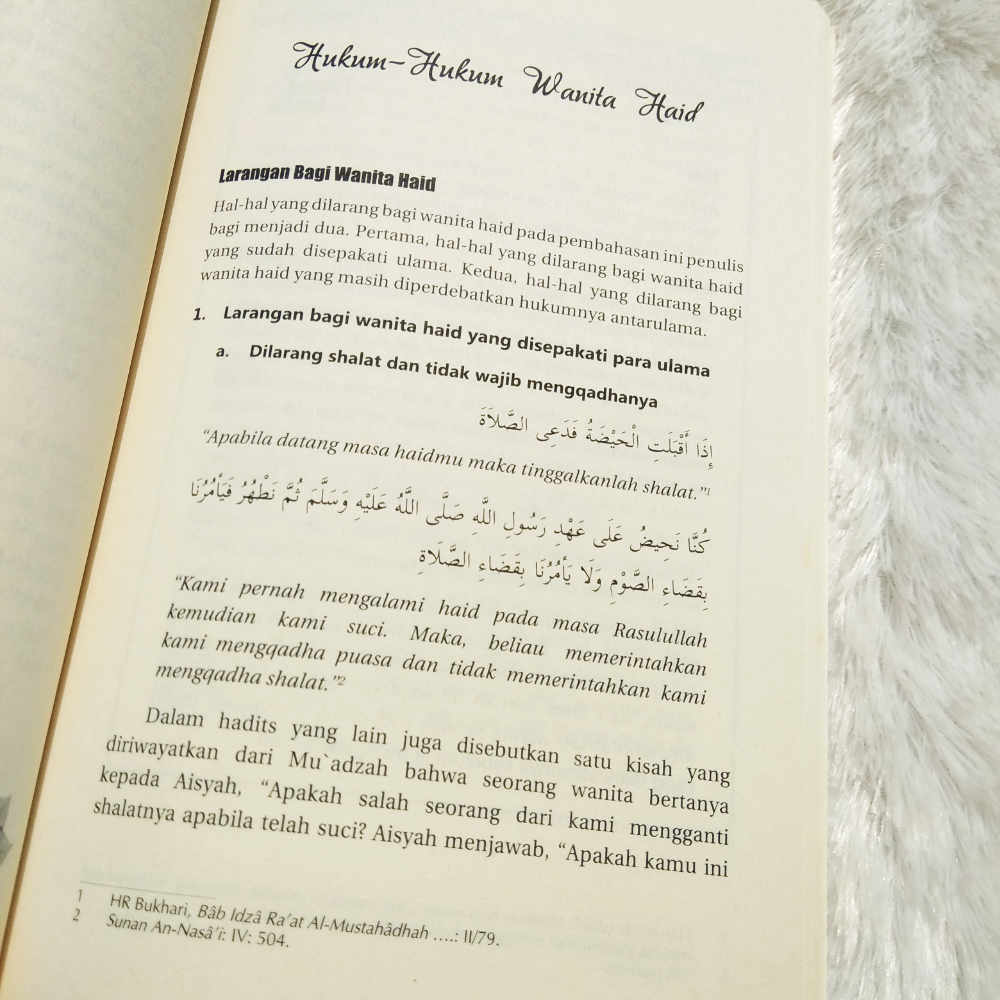 Hukum-Hukum Wanita Haid
Larangan Bagi Wanita Haid
Hal-hal yang dilarang bagi wanita haid pada pembahasan ini penulis
bagi menjadi dua. Pertama, hal-hal yang dilarang bagi wanita haid
yang sudah disepakati ulama. Kedua, hal-hal yang dilarang bagi
wanita haid yang masih diperdebatkan hukumnya antarulama.
1. Larangan bagi wanita haid yang disepakati para ulama
a. Dilarang shalat dan tidak wajib mengqadhanya
إِذَا أَقْبَلَتِ الْحَيْضَةُ فَدَعِى الصَّلَاةَ
“Apabila datang masa haidmu maka tinggalkanlah shalat.”1
كُنَّا نَحِيضُ عَلَى عَهْدِ رَسُولِ اللَّهِ صَلَّى اللَّهُ عَلَيْهِ وَسَلَّمَ ثُمَّ نَطْهُرُ فَيَأْمُرُنَا
بِقَضَاءِ الصَّوْمِ وَلَا يَأْمُرُنَا بِقَضَاءِ الصَّلَاةِ
“Kami pernah mengalami haid pada masa Rasulullah
kemudian kami suci. Maka, beliau memerintahkan
kami mengqadha puasa dan tidak memerintahkan kami
mengqadha shalat.”2
Dalam hadits yang lain juga disebutkan satu kisah yang
diriwayatkan dari Mu`adzah bahwa seorang wanita bertanya
kepada Aisyah, “Apakah salah seorang dari kami mengganti
shalatnya apabila telah suci? Aisyah menjawab, “Apakah kamu ini
1 HR Bukhari, Bâb Idzâ Ra’at Al-Mustahâdhah ....: II/79.
2 Sunan An-Nasâ’i: IV: 504.